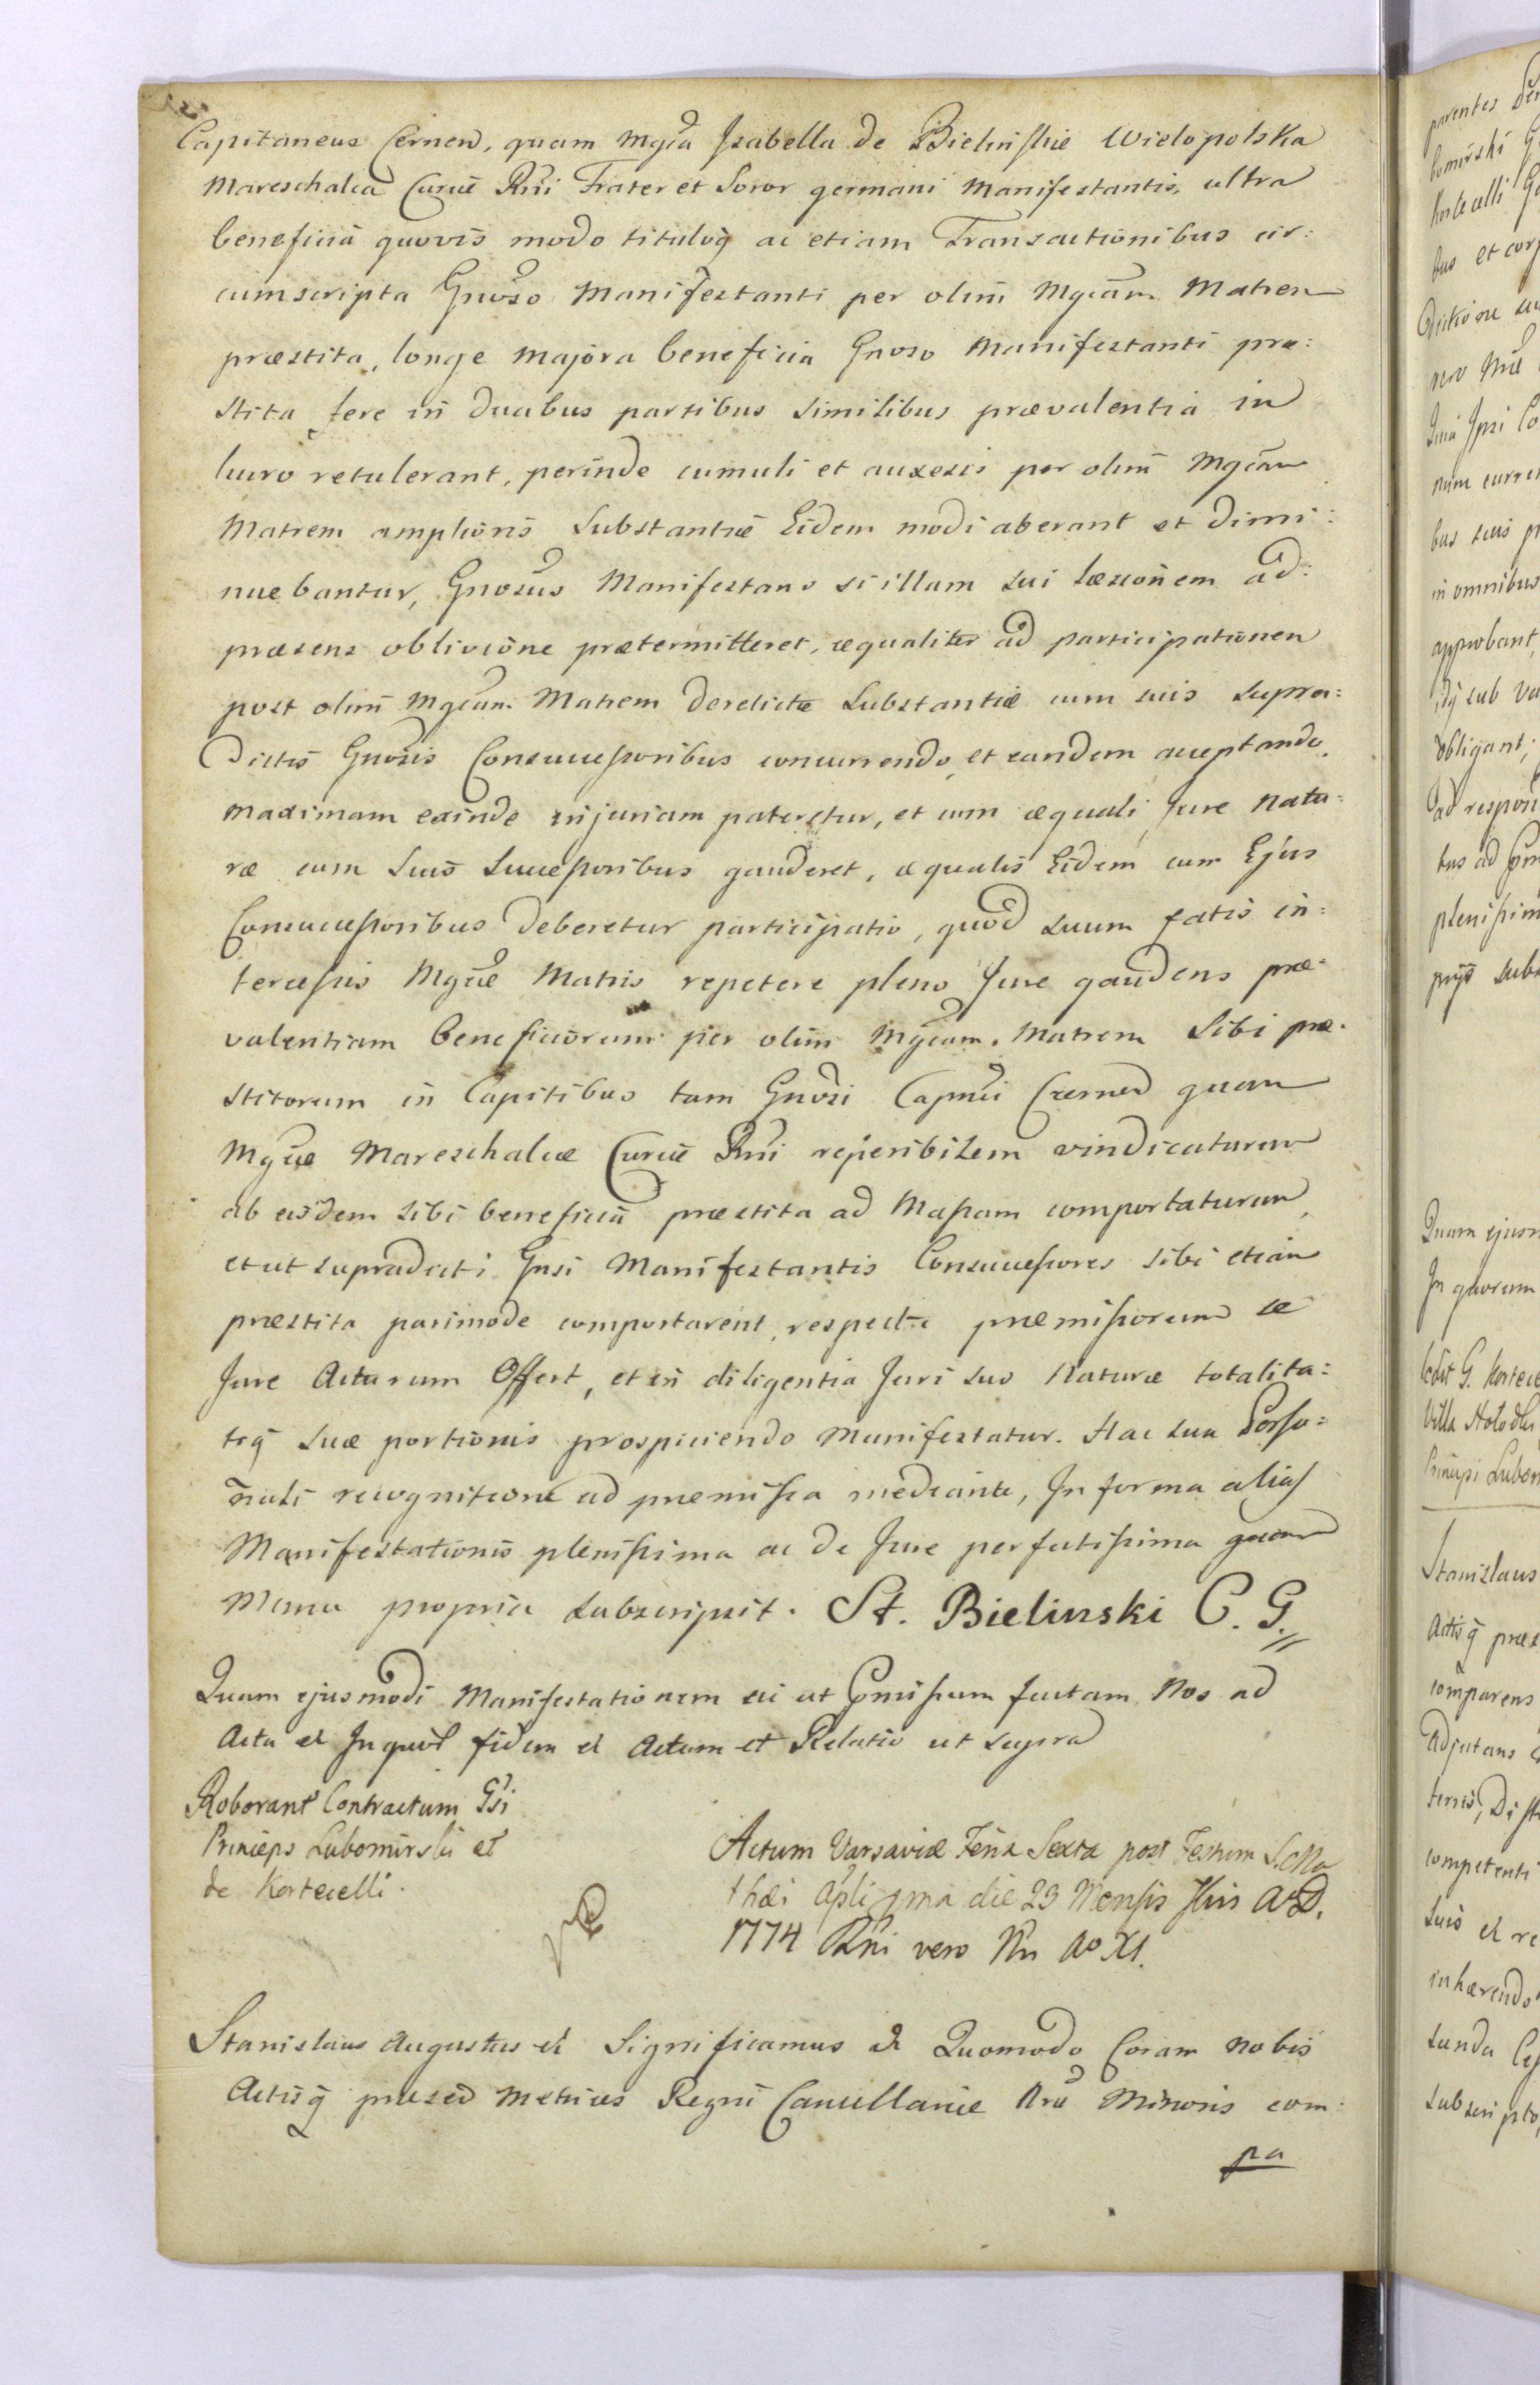 Capitaneus Cernen, quam Mgca Isabella de Bielinskie Wielopolska
Mareschalca Curiæ Rni Frater et Soror germani Manifestantis, ultra
beneficia quovis modo tituloq ac etiam Transactionibus cir:
cumscripta Gnoso Manifestanti per olim Mgcam Matrem
præstita, longe majora beneficia Gnoso Manifestanti præ:
stita fere in duabus partibus similibus prævalentia in
lucro retulerant, perinde cumuli et auxesis per olim Mgcam
Matrem amplioris Substantiæ Eidem modi aberant et dimi:
nuebantur, Gnosus Manifestans si illam sui læsionem ad:
præsens oblivione prætermitteret, æqualiter ad participationem
post olim Mgcam Matrem derelictæ Substantiæ cum suis supra:
dictis Gnosis Consuccessoribus concurrendo, et eandem acceptando,
maximam exinde injuriam pateretur, et cum æquali Jure natu:
ræ cum Suis Successoribus gauderet, æqualis Eidem cum Ejus
Consuccessoribus deberetur participatio, quod suum fatis in:
tercessis Mgcæ Matris repetere pleno Jure gaudens præ:
valentiam beneficiorum per olim Mgcam Matrem Sibi præ:
stitorum in Capitibus tam Gnosi Capnei Czerned quam
Mgcæ Mareschalcæ Curiæ Rni reperibilem vindicaturum
ab eisdem sibi beneficia præstita ad Massam comportaturum,
et ut supradicti Gnsi Manifestantis Consuccessores sibi etiam
præstita parimode comportarent, respectu præmissorum se
Jure Acturum Offert, et in diligentia Juri suo Naturæ totalita:
teq suæ portionis prospiciendo Manifestatur. Hac sua Perso:
nali recognitione ad præmissa mediante, In forma alias
Manifestationis plenissima ac de Jure perfectissima quam
Manu propria subscripsit. St. Bielinski C. G.
Quam ejusmodi Manifestationem uti ut præmissum factam Nos ad
Acta et In quor fidem et Actum et Relatio ut supra
Roborant Contractum Gsi
Princeps Lubomirski et
de Kortecelli.
Actum Varsaviæ Feria Sexta post Festum S. Ma
thæi Apli pma die 23 Mensis 7bris A. D.
1774 Rni vero Nri Ao XI.
Stanislaus Augustus et Significamus et Quomodo Coram nobis
Actisq præsed Metrices Regni Cancellariæ Nræ Minoris com:
pa